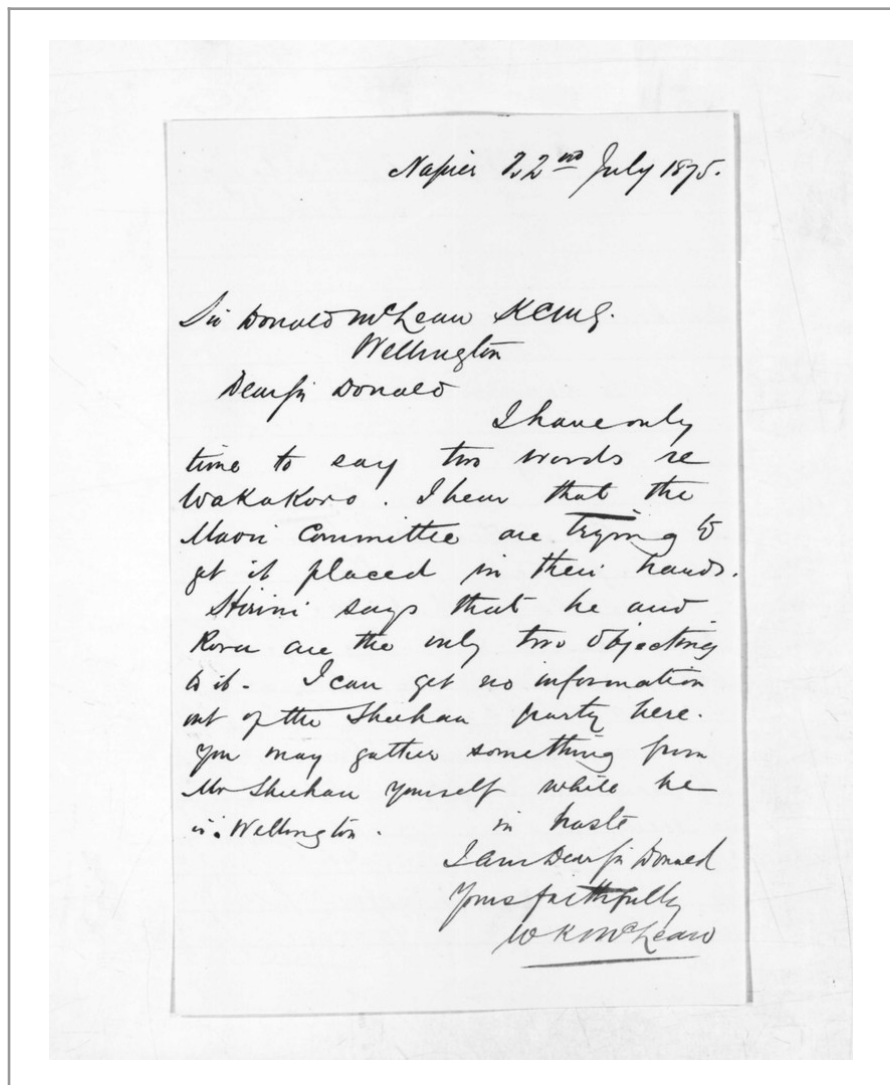 Napier 22nd July 1875.
Sir Donald McLean KCMG.
Wellington
Dear Sir Donald
I have only
time to say two words re
Wakakoro. I hear that the
Maori Committee are trying to
get it placed in their hands.
Hirini says that he and
Rora are the only two objecting
to it. I can get no information
out of the Sheehan party here.
You may gather something from
Mr Sheehan yourself while he
is in Wellington. in haste
I am Dear Sir Donald
Yours faithfully
W K McLean